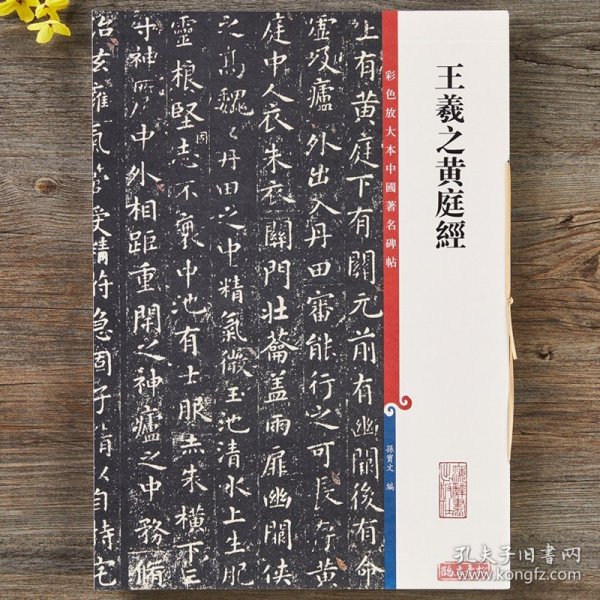 王羲之黄庭經
彩色放大本中國著名碑帖
孫寶文 編
上有黄庭下有關元前有幽闕後有命
虛吸廬外出入丹田審能行之可長存黄
庭中人衣朱衣關門壮籥蓋兩扉幽闕俠
之高魏〻丹田之中精氣微玉池清水上生肥
靈根堅志不衰中池有士服赤朱横下三
寸神所中外相距重閉之神廬之中務脩
治玄廱氣管受精符急固子精以自持宅
孔夫子旧书网
www.kongfz.com